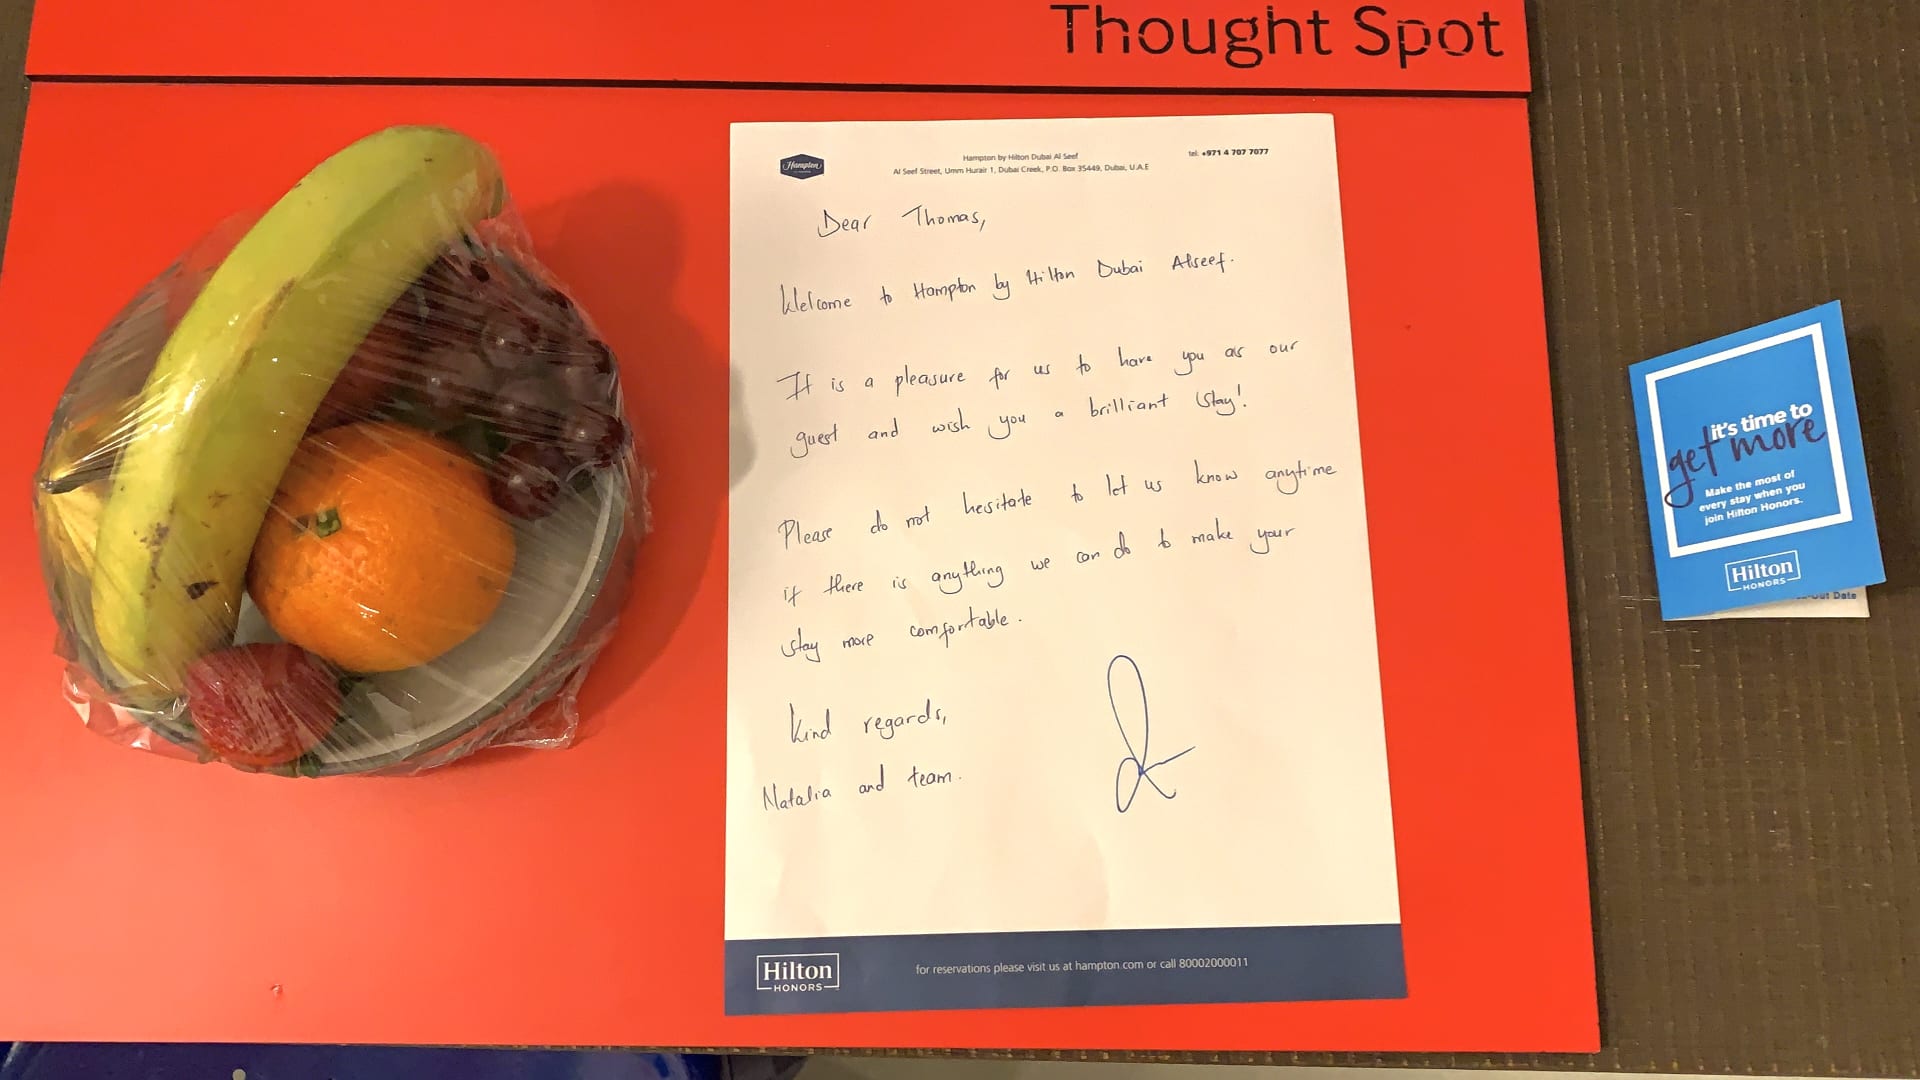 Thought Spot
Hampton
Hampton by Hilton Dubai Al Seef
Al Seef Street, Umm Hurair 1, Dubai Creek, P.O. Box 35449, Dubai, U.A.E
tel: +971 4 707 7077
Dear Thomas,
Welcome to Hampton by Hilton Dubai Alseef.
It is a pleasure for us to have you as our
guest and wish you a brilliant stay!
Please do not hesitate to let us know anytime
if there is anything we can do to make your
stay more comfortable.
Kind regards,
Natalia and team.
Hilton
HONORS
for reservations please visit us at hampton.com or call 80002000011
it's time to
get more
Make the most of
every stay when you
join Hilton Honors.
Hilton
HONORS
Out Date